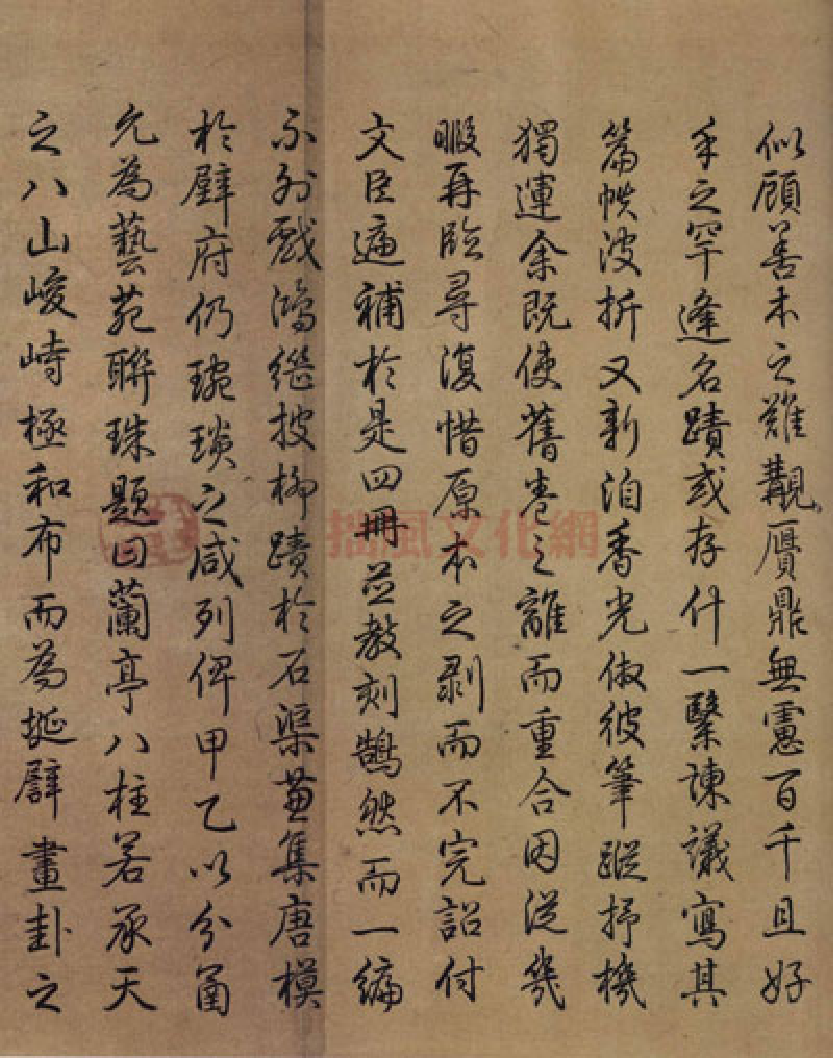 似顧善本之難覯贋鼎無慮百千且好
手之罕逢名蹟或存什一繄諫議寫其
篇帙波折又新洎香光倣彼筆蹤抒機
獨運余既使舊卷之離而重合因從幾
暇再臨尋復惜原本之剥而不完詔付
文臣遍補於是四冊並教刻鵠然而一編
不外戲鴻繼披柳蹟於石渠兼集唐模
於壁府仍琬琰之咸列俾甲乙以分函
允為藝苑聯珠題曰蘭亭八柱若承天
之八山峻峙極和布而為埏臂畫卦之
揣風文化網